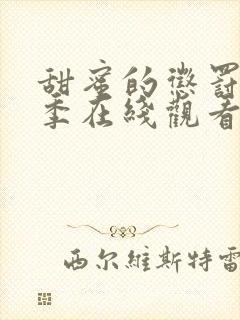 甜蜜的懲罰
季在綫觀看
西尔維斯特雷